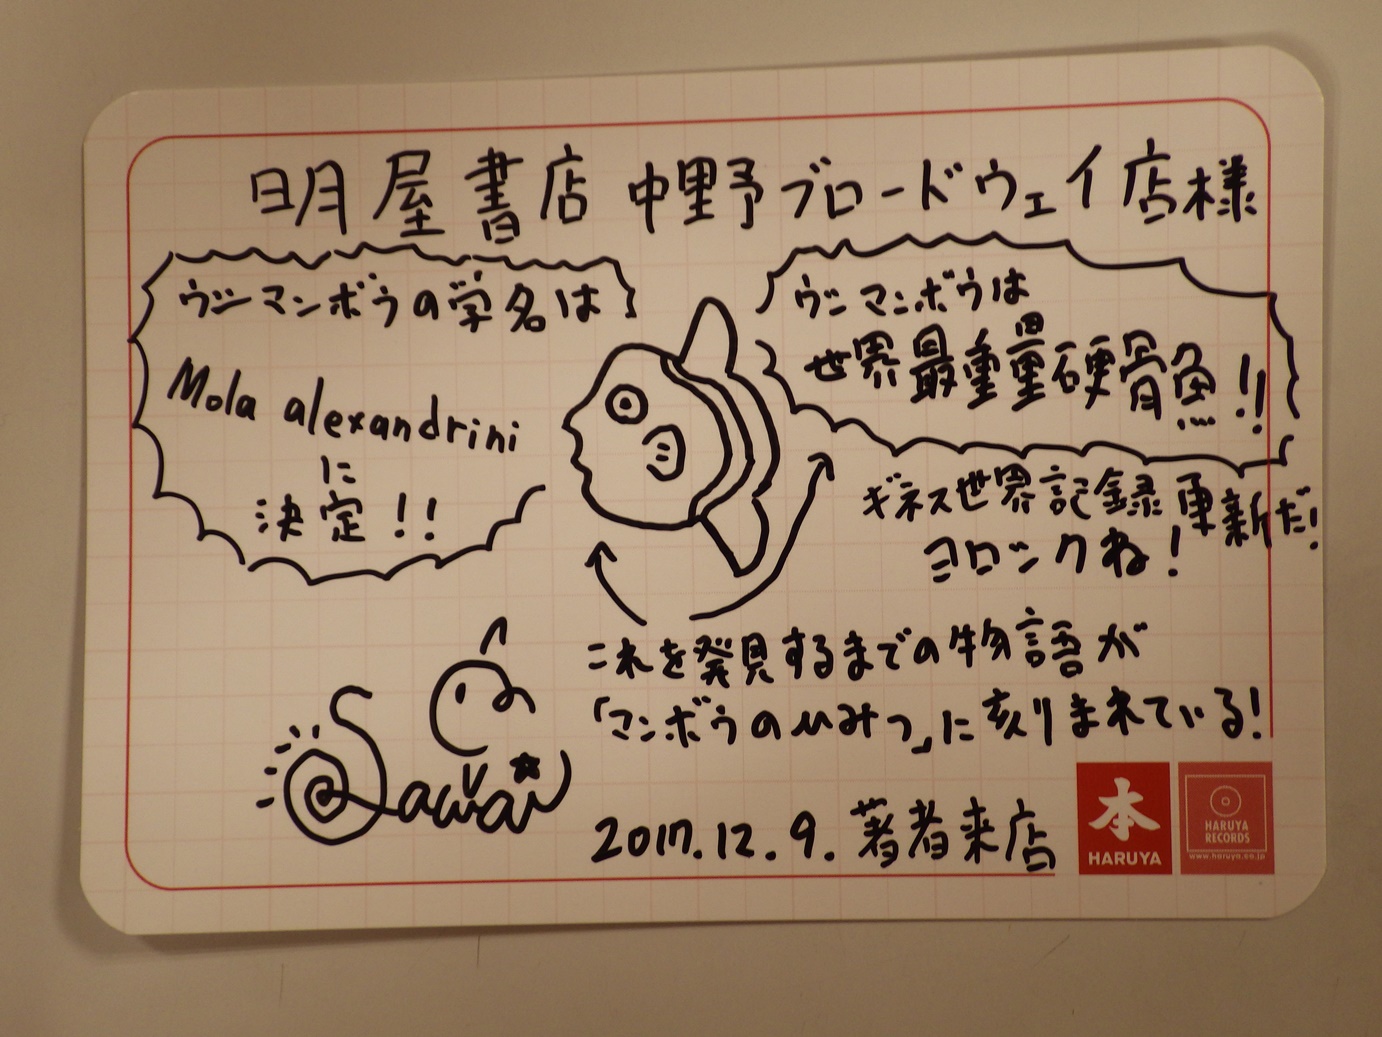 明屋書店 中野ブロードウェイ店様
ウシマンボウの学名は
Mola alexandrini
に
決定!!
ウシマンボウは
世界最重量硬骨魚!!
ギネス世界記録更新だ!
ヨロシクね!
これを発見するまでの物語が
「マンボウのひみつ」に刻りまれている!
Sawai
2017.12.9. 著者来店
本
HARUYA
HARUYA
RECORDS
www.haruya.co.jp